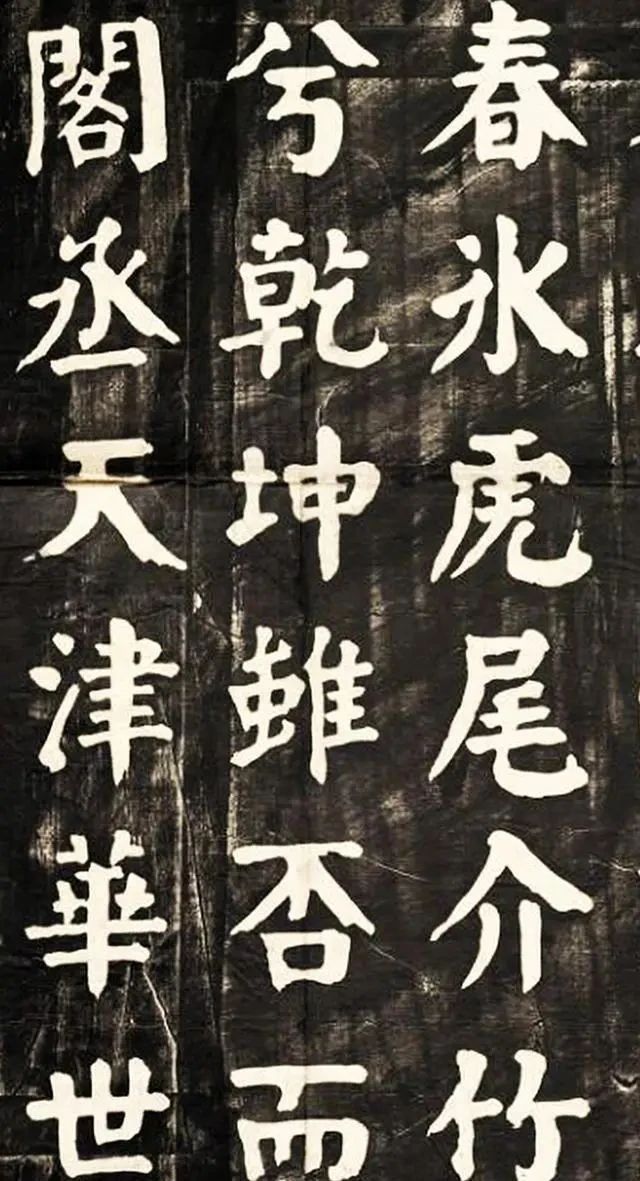 春氷虎尾介竹
兮乾坤雖否而
閣丞天津華世